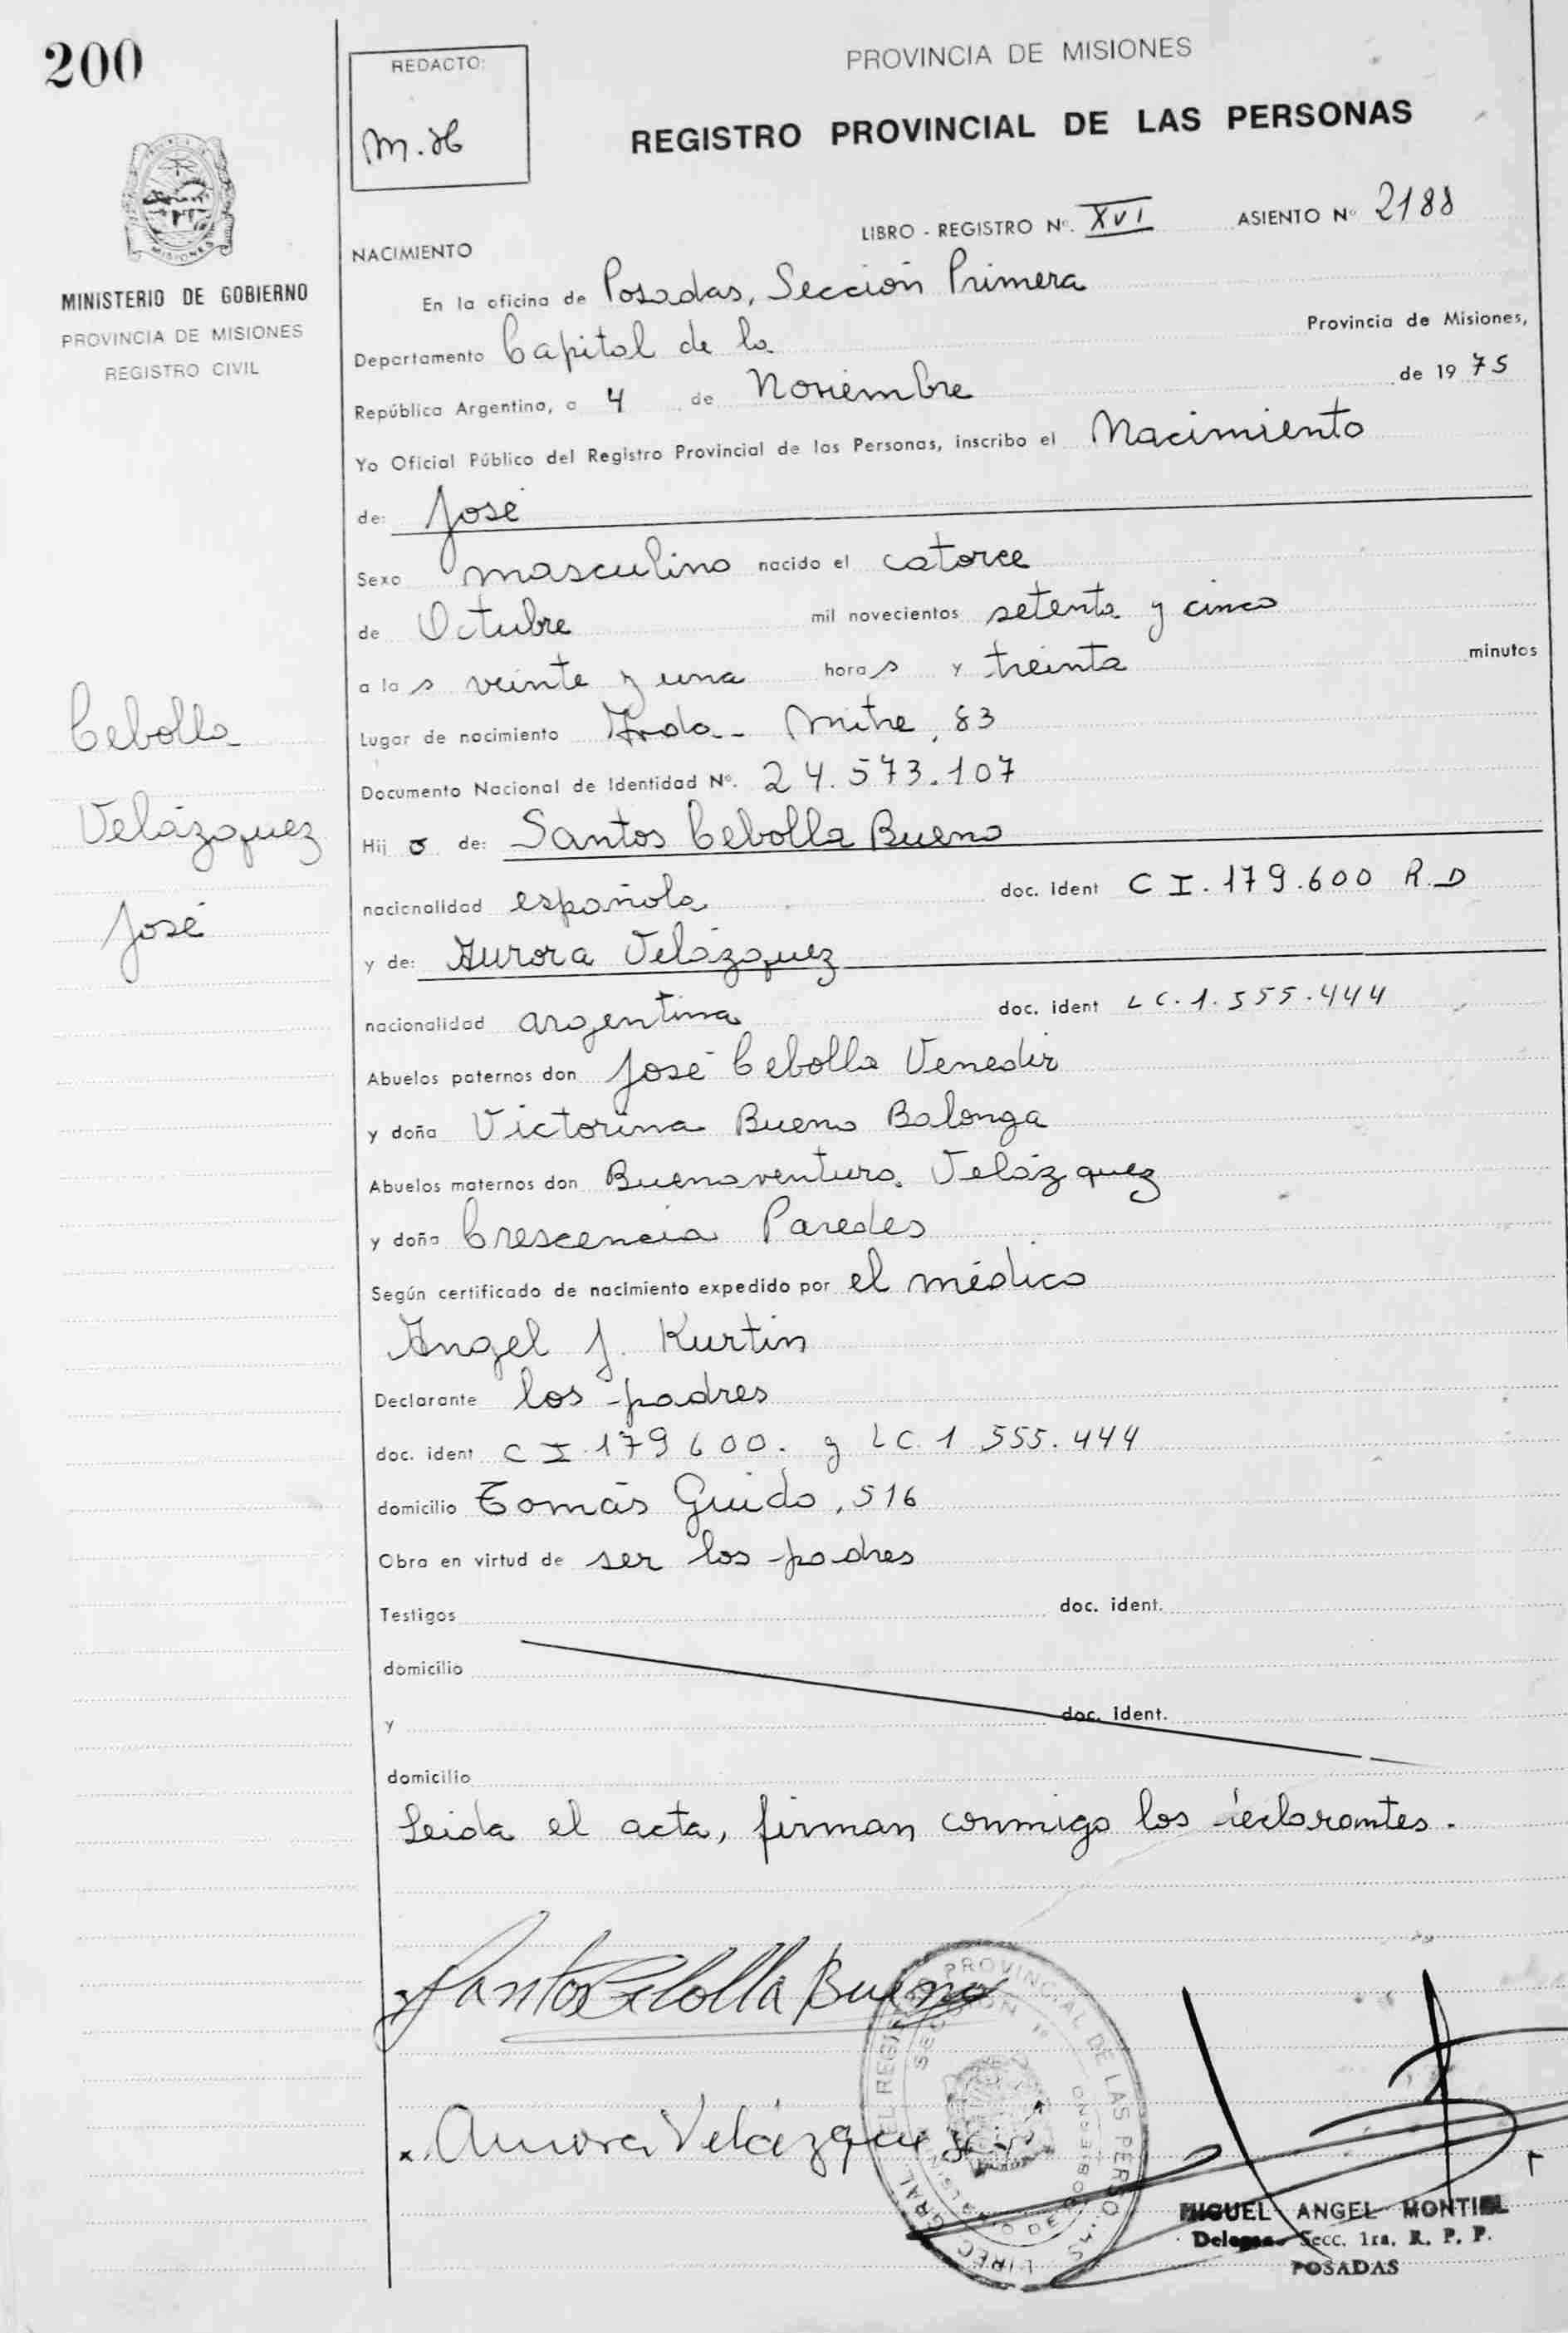 200
REDACTO:
M.H
PROVINCIA DE MISIONES
REGISTRO PROVINCIAL DE LAS PERSONAS
LIBRO - REGISTRO Nº. XVI ASIENTO Nº 2188
MISIONES
MINISTERIO DE GOBIERNO
PROVINCIA DE MISIONES
REGISTRO CIVIL
NACIMIENTO
En la oficina de Posadas, Sección Primera
Departamento Capital de la Provincia de Misiones,
República Argentina, a 4 de Noviembre de 1975
Yo Oficial Público del Registro Provincial de las Personas, inscribo el Nacimiento
de: José
Sexo masculino nacido el catorce
de Octubre mil novecientos setenta y cinco
a las veinte y una horas y treinta minutos
Lugar de nacimiento Avda. Mitre, 83
Documento Nacional de Identidad Nº. 24.573.107
Hijo de: Santos Cebolla Bueno
nacionalidad española doc. ident CI.179.600 R.D
y de: Aurora Velázquez
nacionalidad argentina doc. ident LC.1.555.444
Abuelos paternos don José Cebolla Venedir
y doña Victorina Bueno Balonga
Abuelos maternos don Buenaventura Velázquez
y doña Crescencia Paredes
Según certificado de nacimiento expedido por el médico
Angel J. Kurtin
Declarante los padres
doc. ident CI.179600. y LC.1.555.444
domicilio Tomás Guido, 516
Obra en virtud de ser los padres
Testigos doc. ident.
domicilio
y doc. ident.
domicilio
Leida el acta, firman conmigo los declarantes.
Cebolla
Velázquez
José
Santos Cebolla Bueno
Aurora Velázquez
PROVINCIAL DE LAS PERSONAS
SECCION 1º
MIGUEL ANGEL MONTIEL
Secc. 1ra. R. P. P.
POSADAS